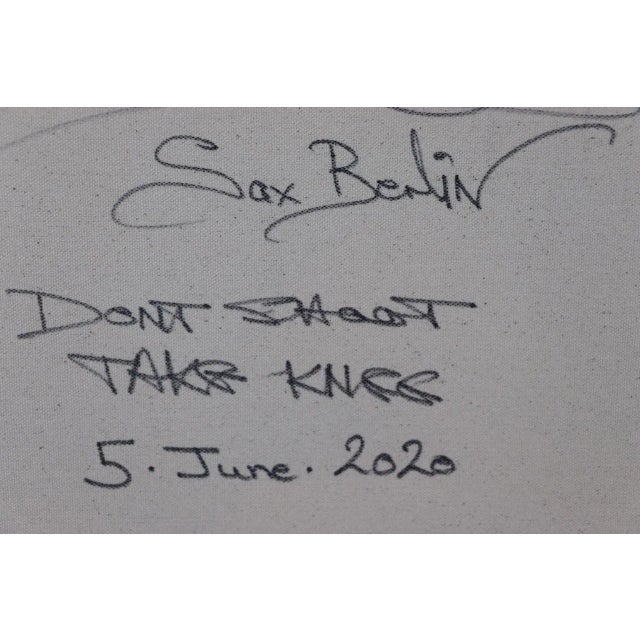 Sax Berlin
DONT SHOOT
TAKE KNEE
5. June. 2020